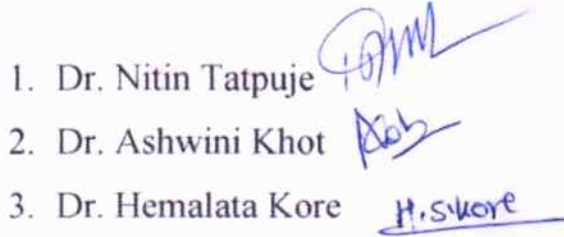 1. Dr. Nitin Tatpuje
2. Dr. Ashwini Khot
3. Dr. Hemalata Kore H.S.Kore